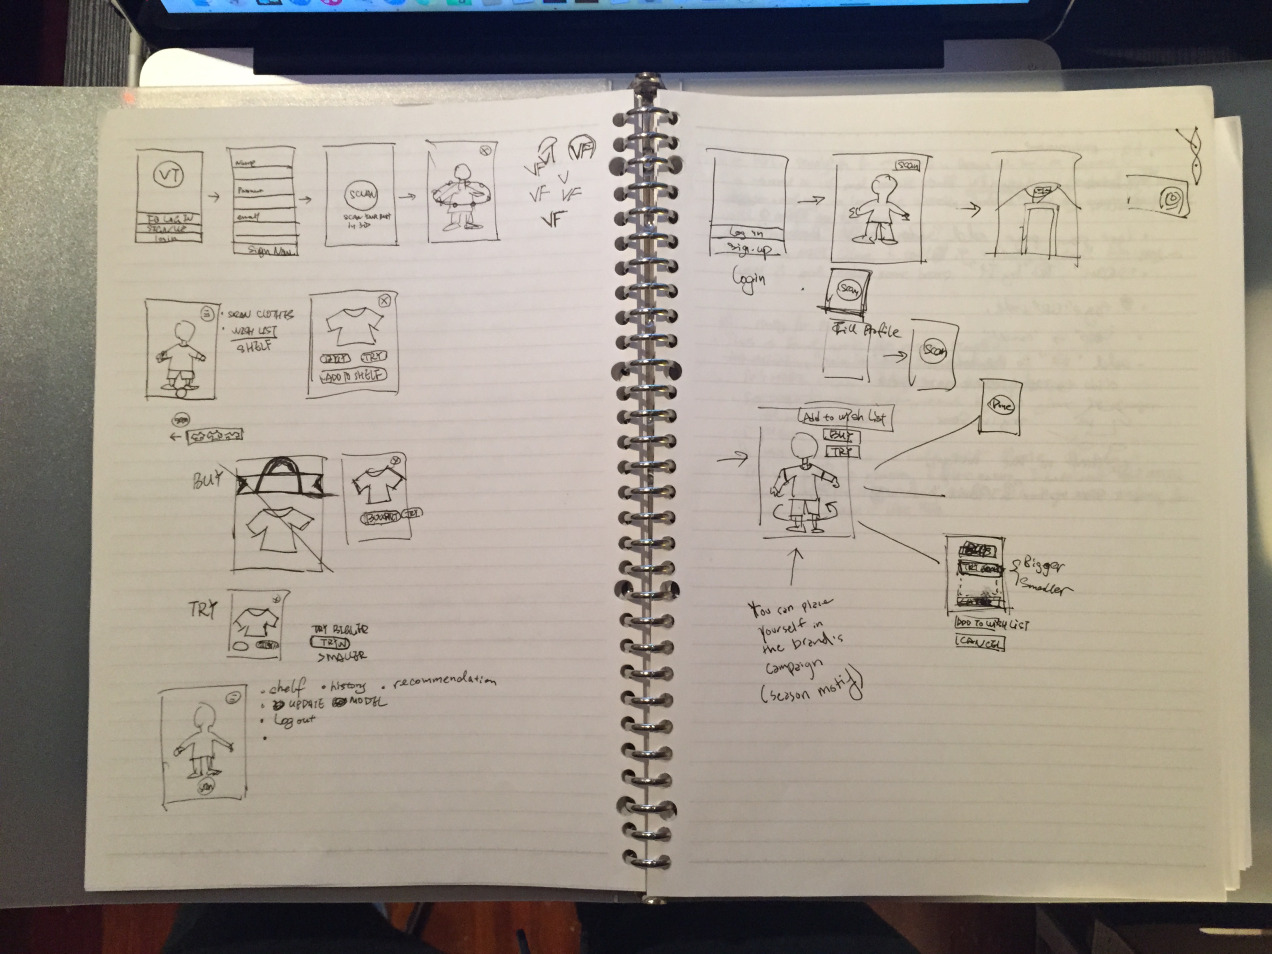 VT
FB LOGIN
SIGN UP
LOGIN
Name
email
Sign Now
SCAN
SCAN YOUR BODY
IN 3D
X
VF
VT
VF
V
VF
VF
VF
• SCAN CLOTHES
• WISH LIST
SHELF
X
BUY
TRY
ADD TO SHELF
BUY
X
TRY
TRY
TRY BIGGER
TRY IN
SMALLER
• shelf • history • recommendation
• UPDATE MODEL
• Log out
•
Log in
Sign-up
Login
Scan
Scan
Fill Profile
Scan
Add to wish List
BUY
TRY
You can place
yourself in
the brand's
campaign
(season motif)
Bigger
Smaller
ADD TO WISH LIST
CANCEL